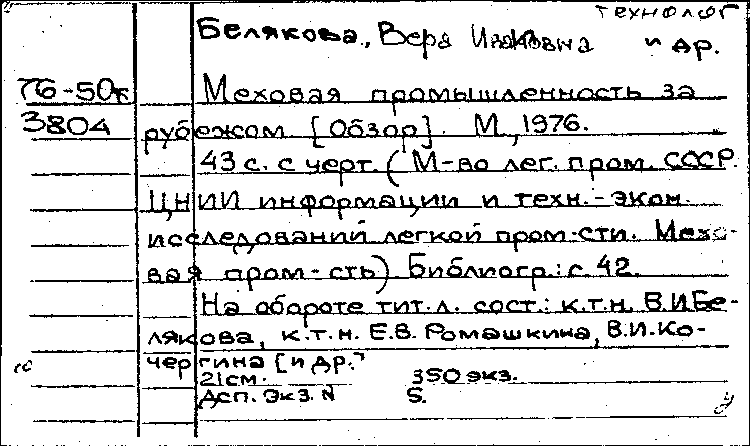 технолог
Белякова, Вера Ивановна и др.
76-50к Меховая промышленность за
3804 рубежом [Обзор]. М., 1976.
43 с. с черт. (М-во лег. пром. СССР.
ЦНИИ информации и техн.-экон.
исследований легкой пром-сти. Мехо-
вая пром-сть) Библиогр.: с. 42.
На обороте тит. л. сост.: к.т.н. В.И.Бе-
лякова, к.т.н. Е.В. Ромашкина, В.И.Ко-
чергина [и др.]
21см. 350 экз.
Дсп. Экз. N Б.